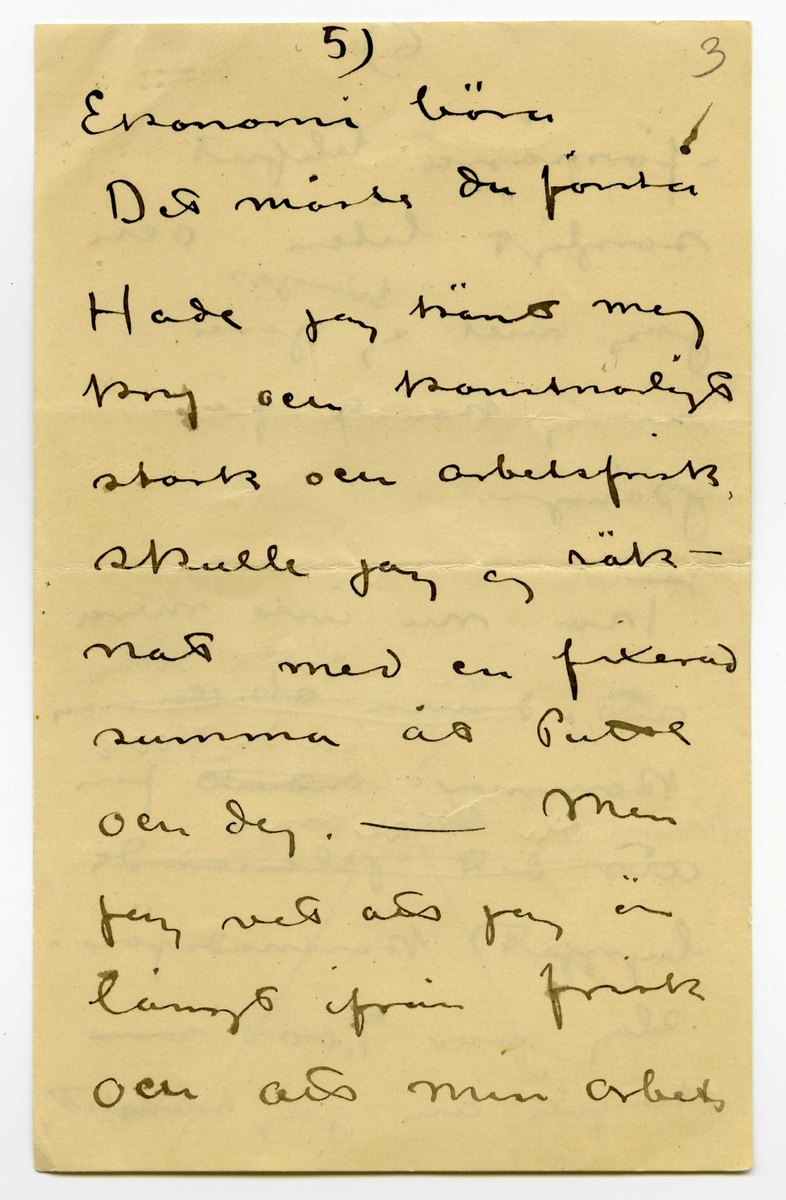 5) 3
Ekonomi böra
Det måste du förstå!
Hade jag känt mig
kry och konstnärligt
stark och arbetsfrisk,
skulle jag ej räk-
nat med en fixerad
summa åt Putte
och dig. — Men
jag vet att jag är
långt ifrån frisk
och att min arbets